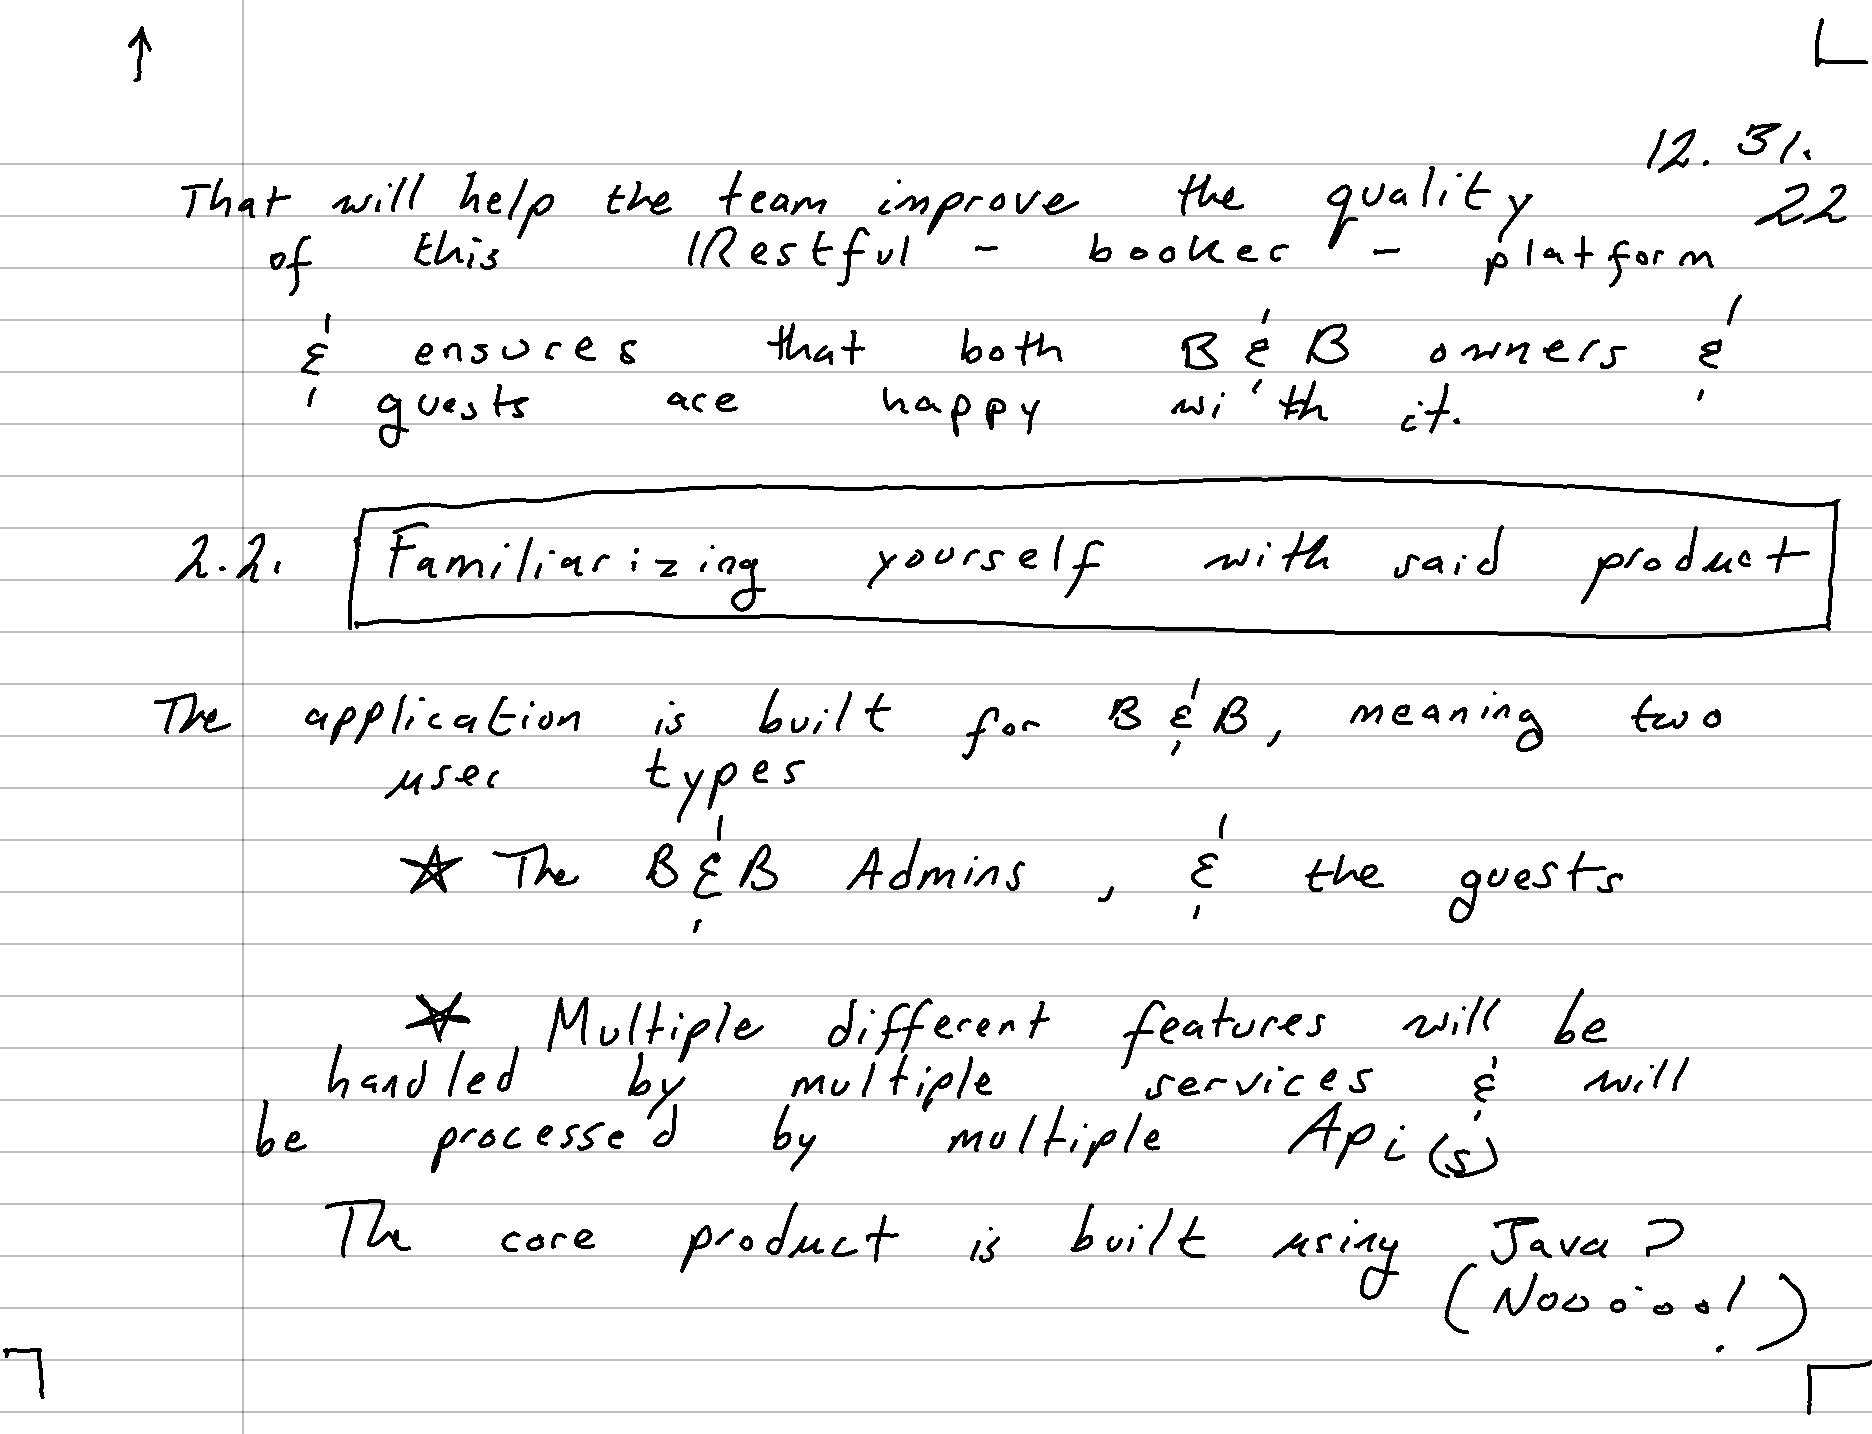 12. 31.
22
That will help the team improve the quality
of this Restful - booker - platform
& ensures that both B & B owners &
guests are happy with it.
2.2. Familiarizing yourself with said product
The application is built for B & B, meaning two
user types
☆ The B & B Admins, & the guests
☆ Multiple different features will be
handled by multiple services & will
be processed by multiple Api(s)
The core product is built using Java?
(Nooooo!)